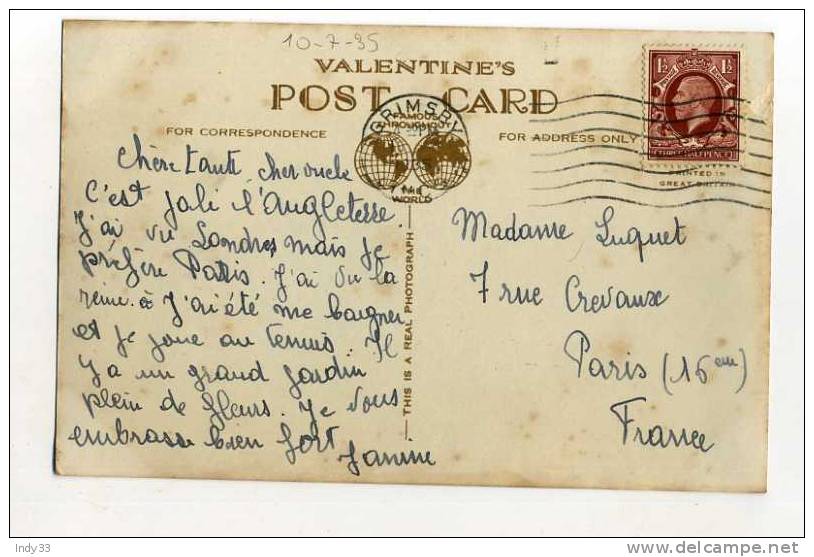 10-7-35
VALENTINE'S
POST CARD
FOR CORRESPONDENCE
FOR ADDRESS ONLY
GRIMSBY
FAMOUS
THROUGHOUT
THE
WORLD
1½ 1½
THREE HALFPENCE
PRINTED IN
GREAT BRITAIN
THIS IS A REAL PHOTOGRAPH
Chère tante, cher oncle
C'est joli l'Angleterre.
J'ai vu Londres, mais je
préfère Paris. J'ai vu la
reine. J'ai été me baigner
et je joue au tennis. Il
y a un grand jardin
plein de fleurs. Je vous
embrasse bien fort
Janine
Madame Luquet
7 rue Crevaux
Paris (16em)
France
Indy33
www.delcampe.net